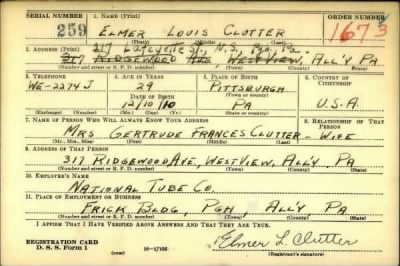 SERIAL NUMBER 1. NAME (Print) ORDER NUMBER
259 ELMER LOUIS CLUTTER 1673
(First) (Middle) (Last)
2. ADDRESS (Print) 217 Lafayette St., N.S., Pgh, Pa.
317 RIDGEWOOD AVE, WEST VIEW, ALL'Y PA
(Number and street or R. F. D. number) (Town) (County) (State)
3. TELEPHONE 4. AGE IN YEARS 5. PLACE OF BIRTH 6. COUNTRY OF CITIZENSHIP
WE-2274J 29 PITTSBURGH
DATE OF BIRTH (Town or county)
12/10/10 PA U.S.A.
(Exchange) (Number) (Mo.) (Day) (Yr.) (State or country)
7. NAME OF PERSON WHO WILL ALWAYS KNOW YOUR ADDRESS 8. RELATIONSHIP OF THAT PERSON
MRS GERTRUDE FRANCES CLUTTER - WIFE
(Mr., Mrs., Miss) (First) (Middle) (Last)
9. ADDRESS OF THAT PERSON
317 RIDGEWOOD AVE, WEST VIEW, ALL'Y, PA
(Number and street or R. F. D. number) (Town) (County) (State)
10. EMPLOYER'S NAME
NATIONAL TUBE CO.
11. PLACE OF EMPLOYMENT OR BUSINESS
FRICK BLDG, PGH, ALL'Y PA
(Number and street or R. F. D. number) (Town) (County) (State)
I AFFIRM THAT I HAVE VERIFIED ABOVE ANSWERS AND THAT THEY ARE TRUE.
REGISTRATION CARD
D. S. S. Form 1 (over) 16-17105 Elmer L. Clutter
(Registrant's signature)